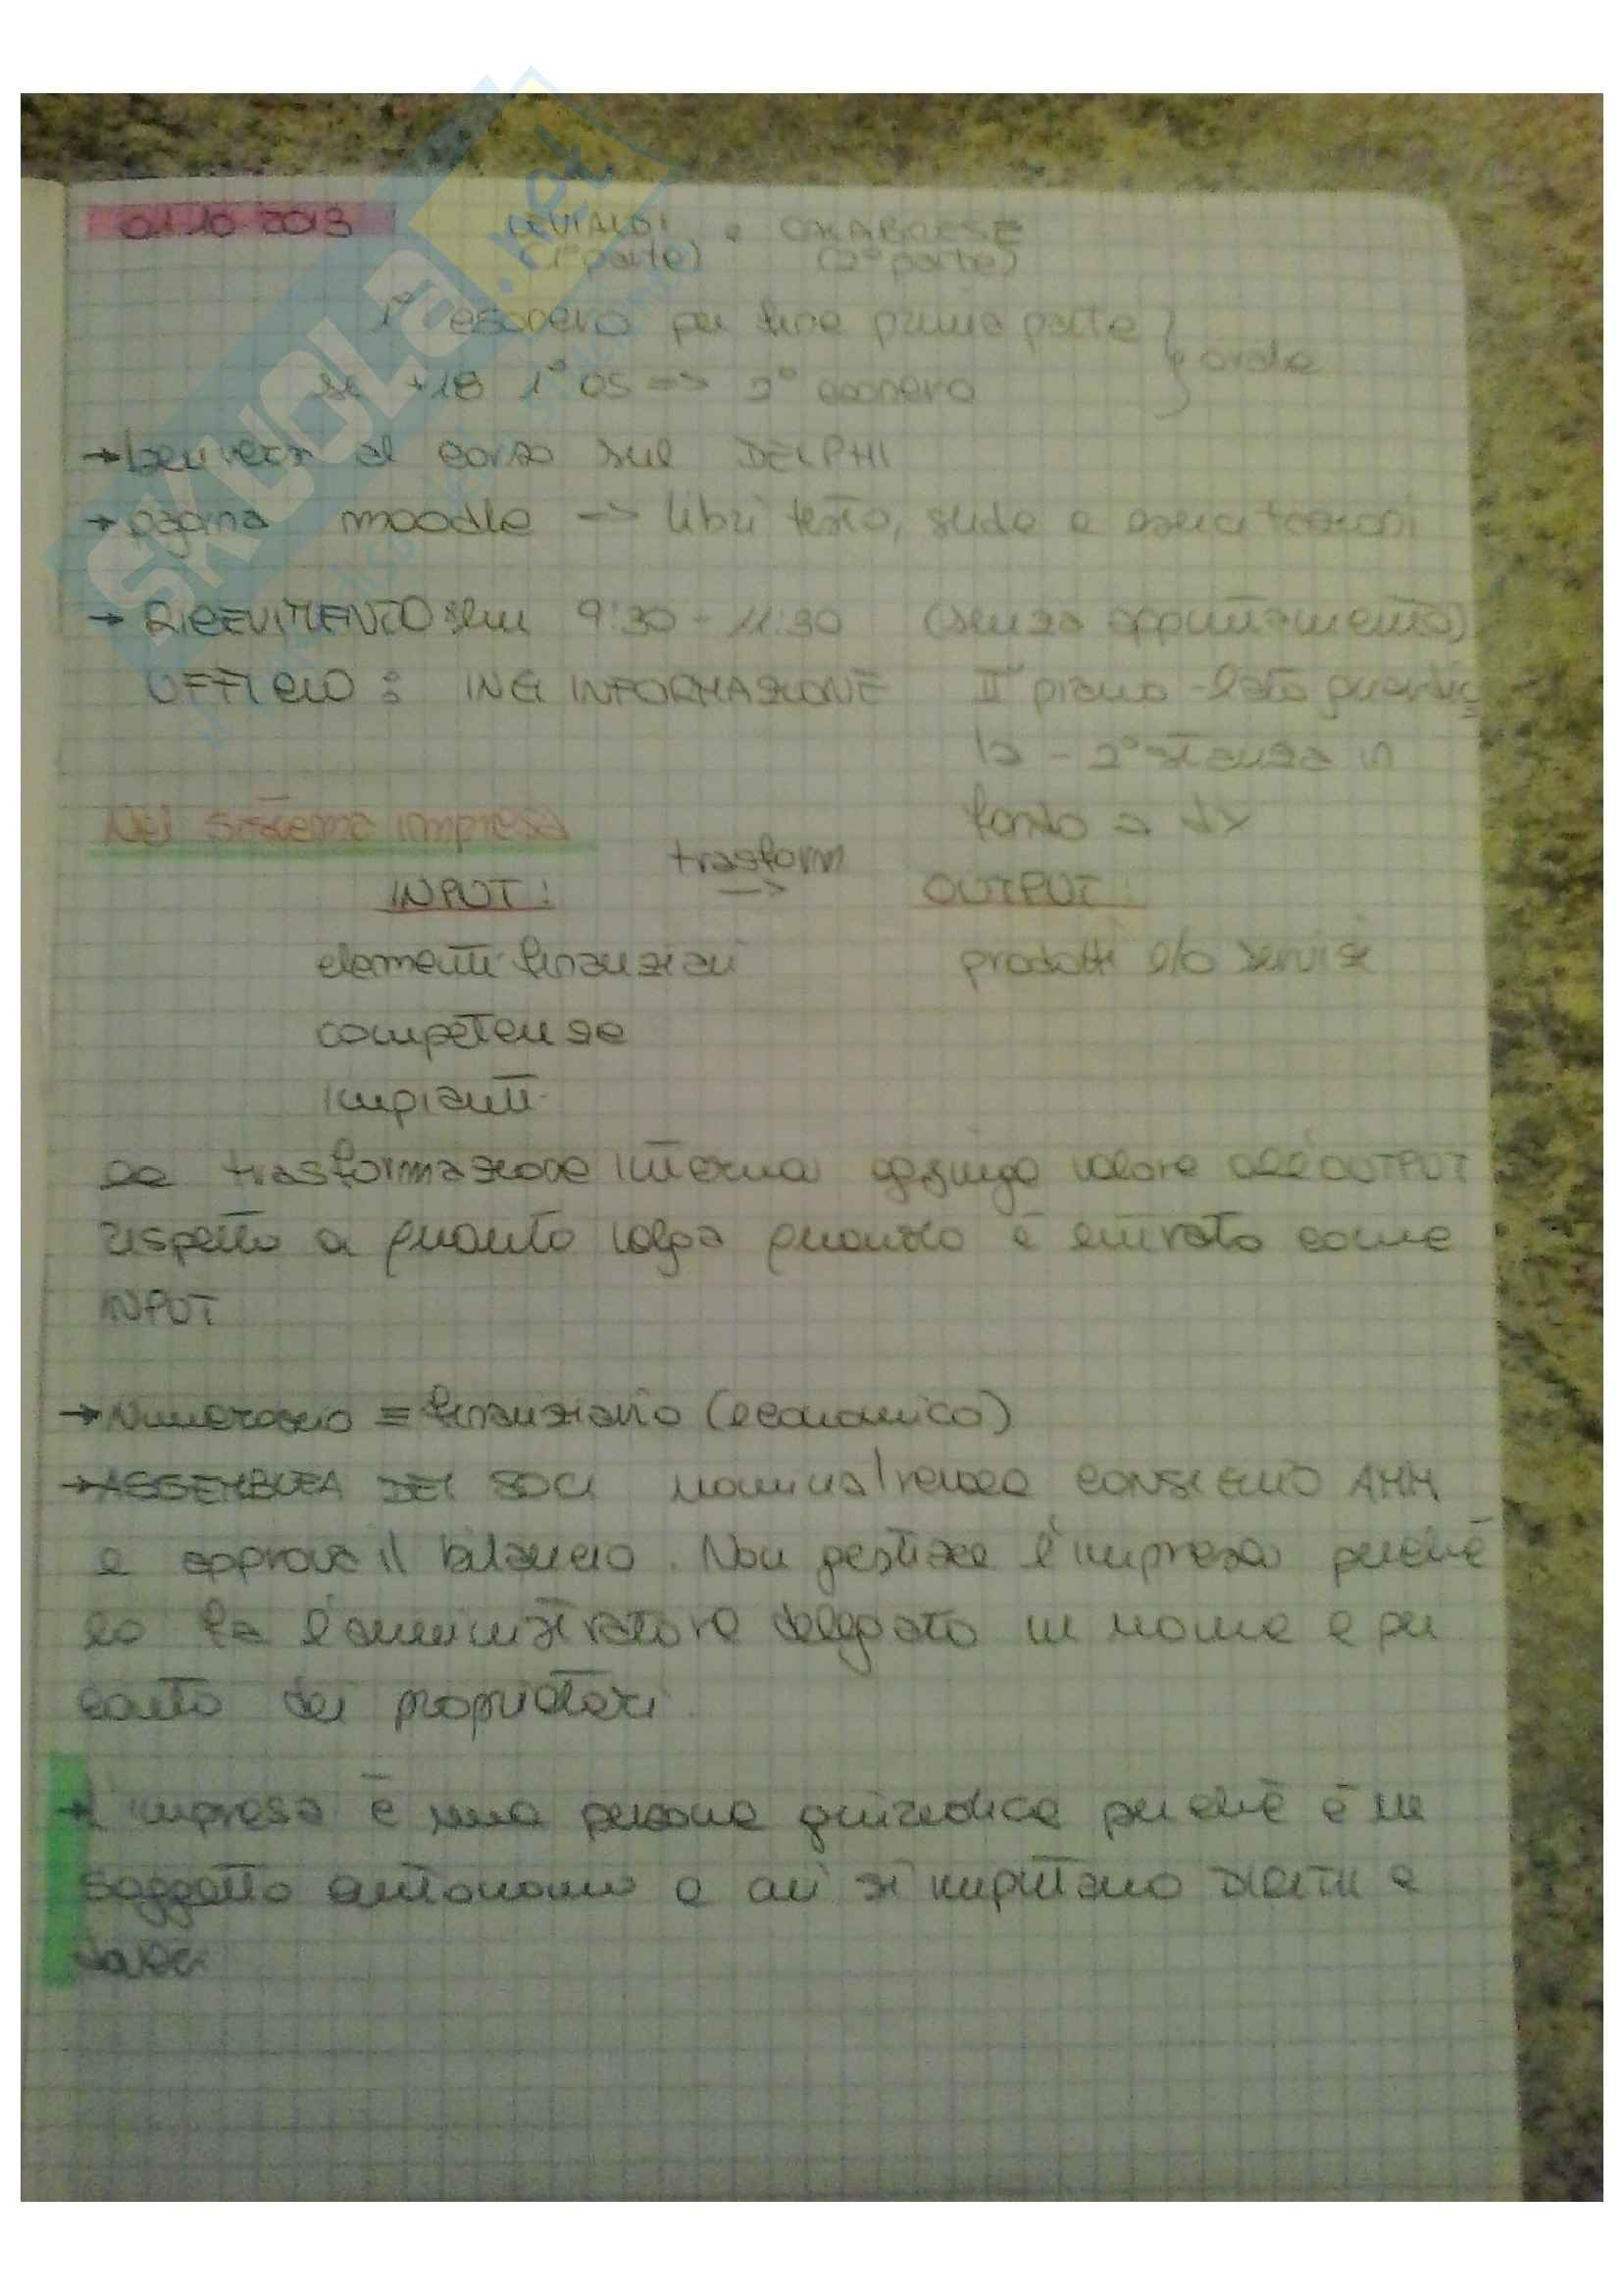 01.10.2013 LEVIALDI e CALABRESE
(1° parte) (2° parte)
1° esonero per fine prima parte
se +18 1° es => 2° esonero } orale
→ al corso sul DELPHI
→ pagina moodle => libri testo, slide e esercitazioni
→ RICEVIMENTO 9:30 - 11:30 (senza appuntamento)
UFFICIO: ING INFORMAZIONE II piano - lato
- 2° stanza in
fondo a dx
Nel sistema impresa
trasform
INPUT: → OUTPUT:
elementi finanziari prodotti e/o servizi
competenze
impianti
La trasformazione interna aggiunge valore all'OUTPUT
rispetto a quanto valga quando è entrato come
INPUT
→ Numerario ≡ finanziario (economico)
→ ASSEMBLEA DEI SOCI nomina/revoca CONSIGLIO AMM
e approva il bilancio. Non gestisce l'impresa perché
lo fa l'amministratore delegato in nome e per
conto dei proprietari.
→ L'impresa è una persona giuridica perché è un
soggetto autonomo a cui si imputano DIRITTI e
doveri
SKUOLA.net